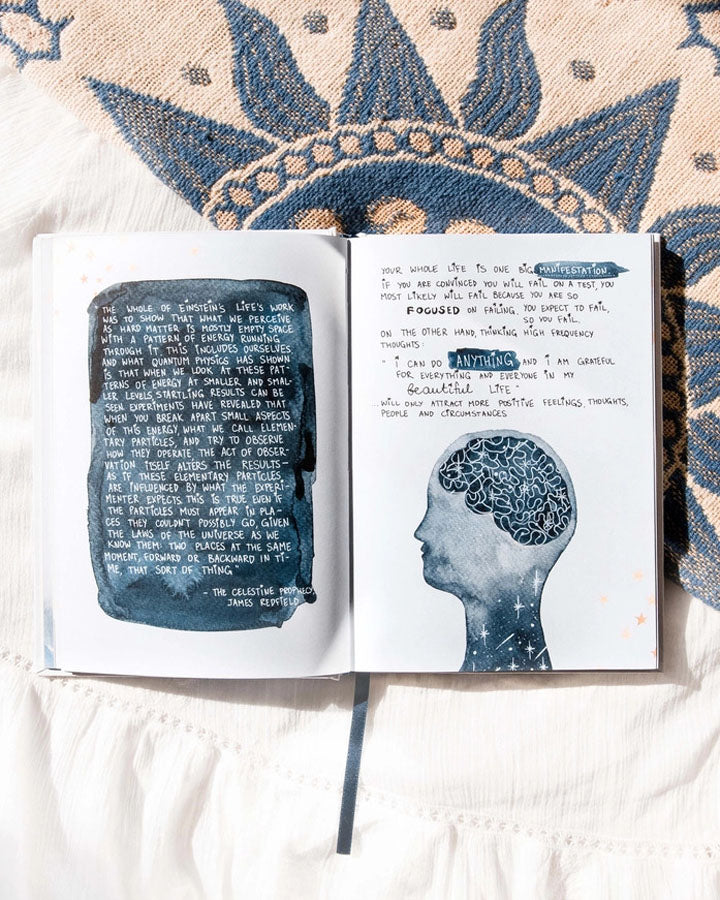 THE WHOLE OF EINSTEIN'S LIFE'S WORK
WAS TO SHOW THAT WHAT WE PERCEIVE
AS HARD MATTER IS MOSTLY EMPTY SPACE
WITH A PATTERN OF ENERGY RUNNING
THROUGH IT THIS INCLUDES OURSELVES
AND WHAT QUANTUM PHYSICS HAS SHOWN
IS THAT WHEN WE LOOK AT THESE PAT-
TERNS OF ENERGY AT SMALLER AND SMAL-
LER LEVELS, STARTLING RESULTS CAN BE
SEEN EXPERIMENTS HAVE REVEALED THAT
WHEN YOU BREAK APART SMALL ASPECTS
OF THIS ENERGY, WHAT WE CALL ELEMEN-
TARY PARTICLES, AND TRY TO OBSERVE
HOW THEY OPERATE THE ACT OF OBSER-
VATION ITSELF ALTERS THE RESULTS–
AS IF THESE ELEMENTARY PARTICLES
ARE INFLUENCED BY WHAT THE EXPERI-
MENTER EXPECTS THIS IS TRUE EVEN IF
THE PARTICLES MUST APPEAR IN PLA-
CES THEY COULDN'T POSSIBLY GO, GIVEN
THE LAWS OF THE UNIVERSE AS WE
KNOW THEM: TWO PLACES AT THE SAME
MOMENT, FORWARD OR BACKWARD IN TI-
ME, THAT SORT OF THING"
- THE CELESTINE PROPHECY,
JAMES REDFIELD
YOUR WHOLE LIFE IS ONE BIG MANIFESTATION.
IF YOU ARE CONVINCED YOU WILL FAIL ON A TEST, YOU
MOST LIKELY WILL FAIL BECAUSE YOU ARE SO
FOCUSED ON FAILING. YOU EXPECT TO FAIL,
SO YOU FAIL.
ON THE OTHER HAND, THINKING HIGH FREQUENCY
THOUGHTS:
" I CAN DO ANYTHING AND I AM GRATEFUL
FOR EVERYTHING AND EVERYONE IN MY
beautiful LIFE "
...WILL ONLY ATTRACT MORE POSITIVE FEELINGS, THOUGHTS,
PEOPLE AND CIRCUMSTANCES